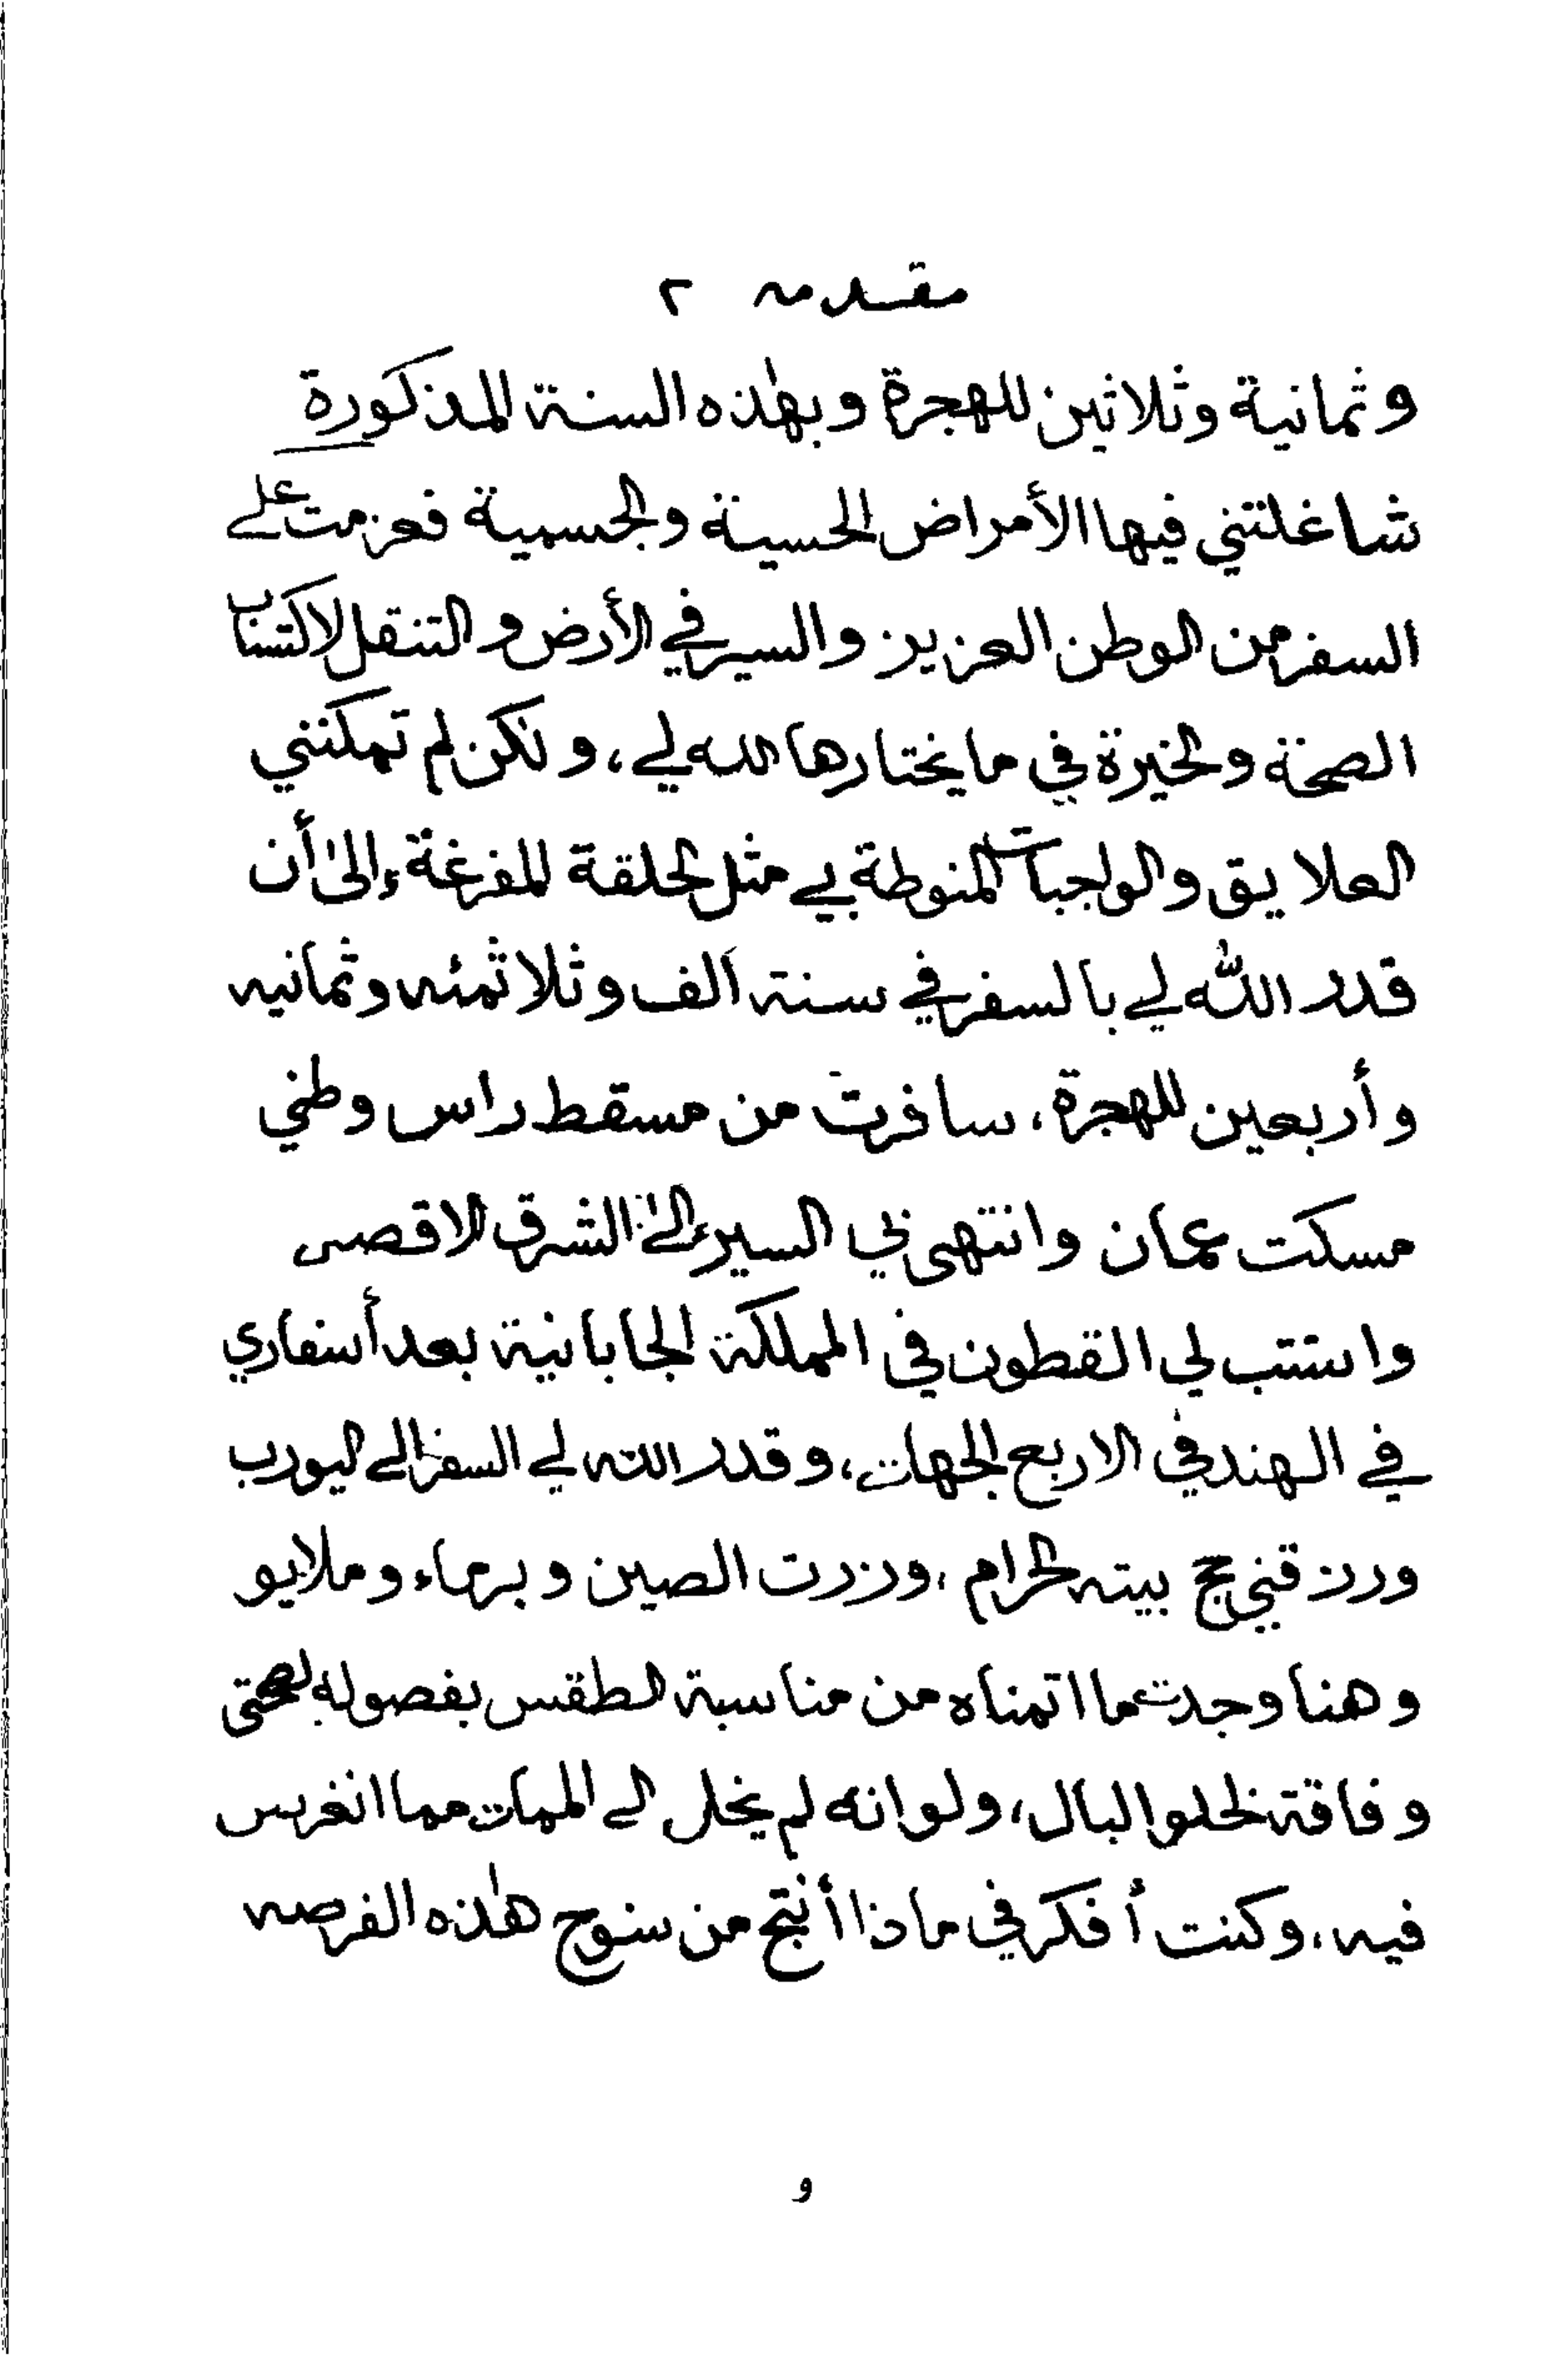 مقدمه ٢
وثمانية وثلاثين للهجرة وبهٰذه السنة المذكورة
شاغلتني فيها الأمراض الحسية والجسمية فعزمت على
السفر من الوطن العزيز والسير في الأرض والتنقل لاكتساب
الصحة والخيرة في ما يختارها الله لي، ولكن لم تمكنني
العلايق والواجبات المنوطة بي مثل الحلقة المفرغة إلىٰ أن
قدر اللّٰه لي بالسفر في سنة الف وثلاثمئه وثمانيه
وأربعين للهجرة، سافرت من مسقط راس وطني
مسكت عمان وانتهى بي السير إلىٰ الشرق الاقصى
واستتب لي القطون في المملكة الجابانية بعد أسفاري
في الهند في الاربع الجهات، وقدر الله لي السفر الى اليورب
ورزقني حج بيته الحرام، وزرت الصين وبرماء وملايو
وهنا وجدت ما اتمناه من مناسبة الطقس بفصوله لصحتي
وفاقة لخلو البال، ولو انه لم يخل لي الممات مما انغرس
فيه، وكنت أفكر في ماذا أنتج من سنوح هٰذه الفرصه
و